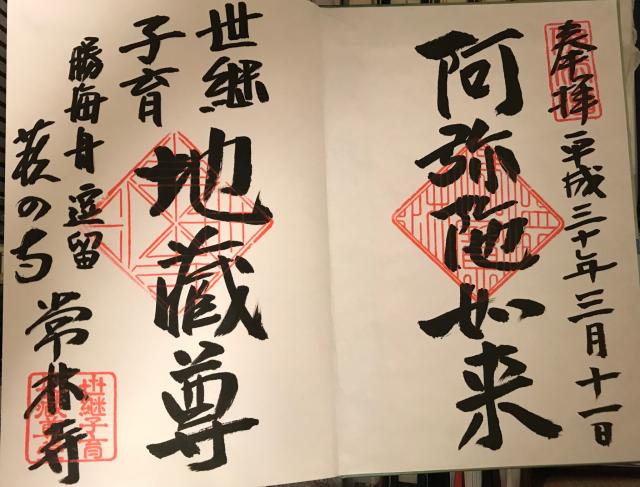 奉拝
平成三十年三月十一日
阿弥陀如来
世継
子育
地蔵尊
勝海舟逗留
萩の寺
常林寺
世継子育